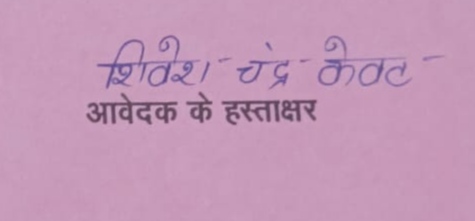 शिवेश चंद्र केवट
आवेदक के हस्ताक्षर